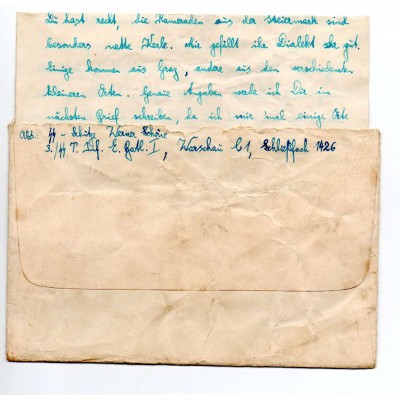 Du hast recht, die Kameraden aus der Steiermark sind
besonders nette Kerle. Mir gefällt ihr Dialekt sehr gut.
Einige kommen aus Graz, andere aus den verschiedensten
kleineren Orten. Genaue Angaben werde ich Dir im
nächsten Brief schreiben, da ich mir mal einige Orte
Abs.: SS - Schütze Werner
3./SS T. Inf. E. Batl. I, Warschau C1, Schließfach 1426